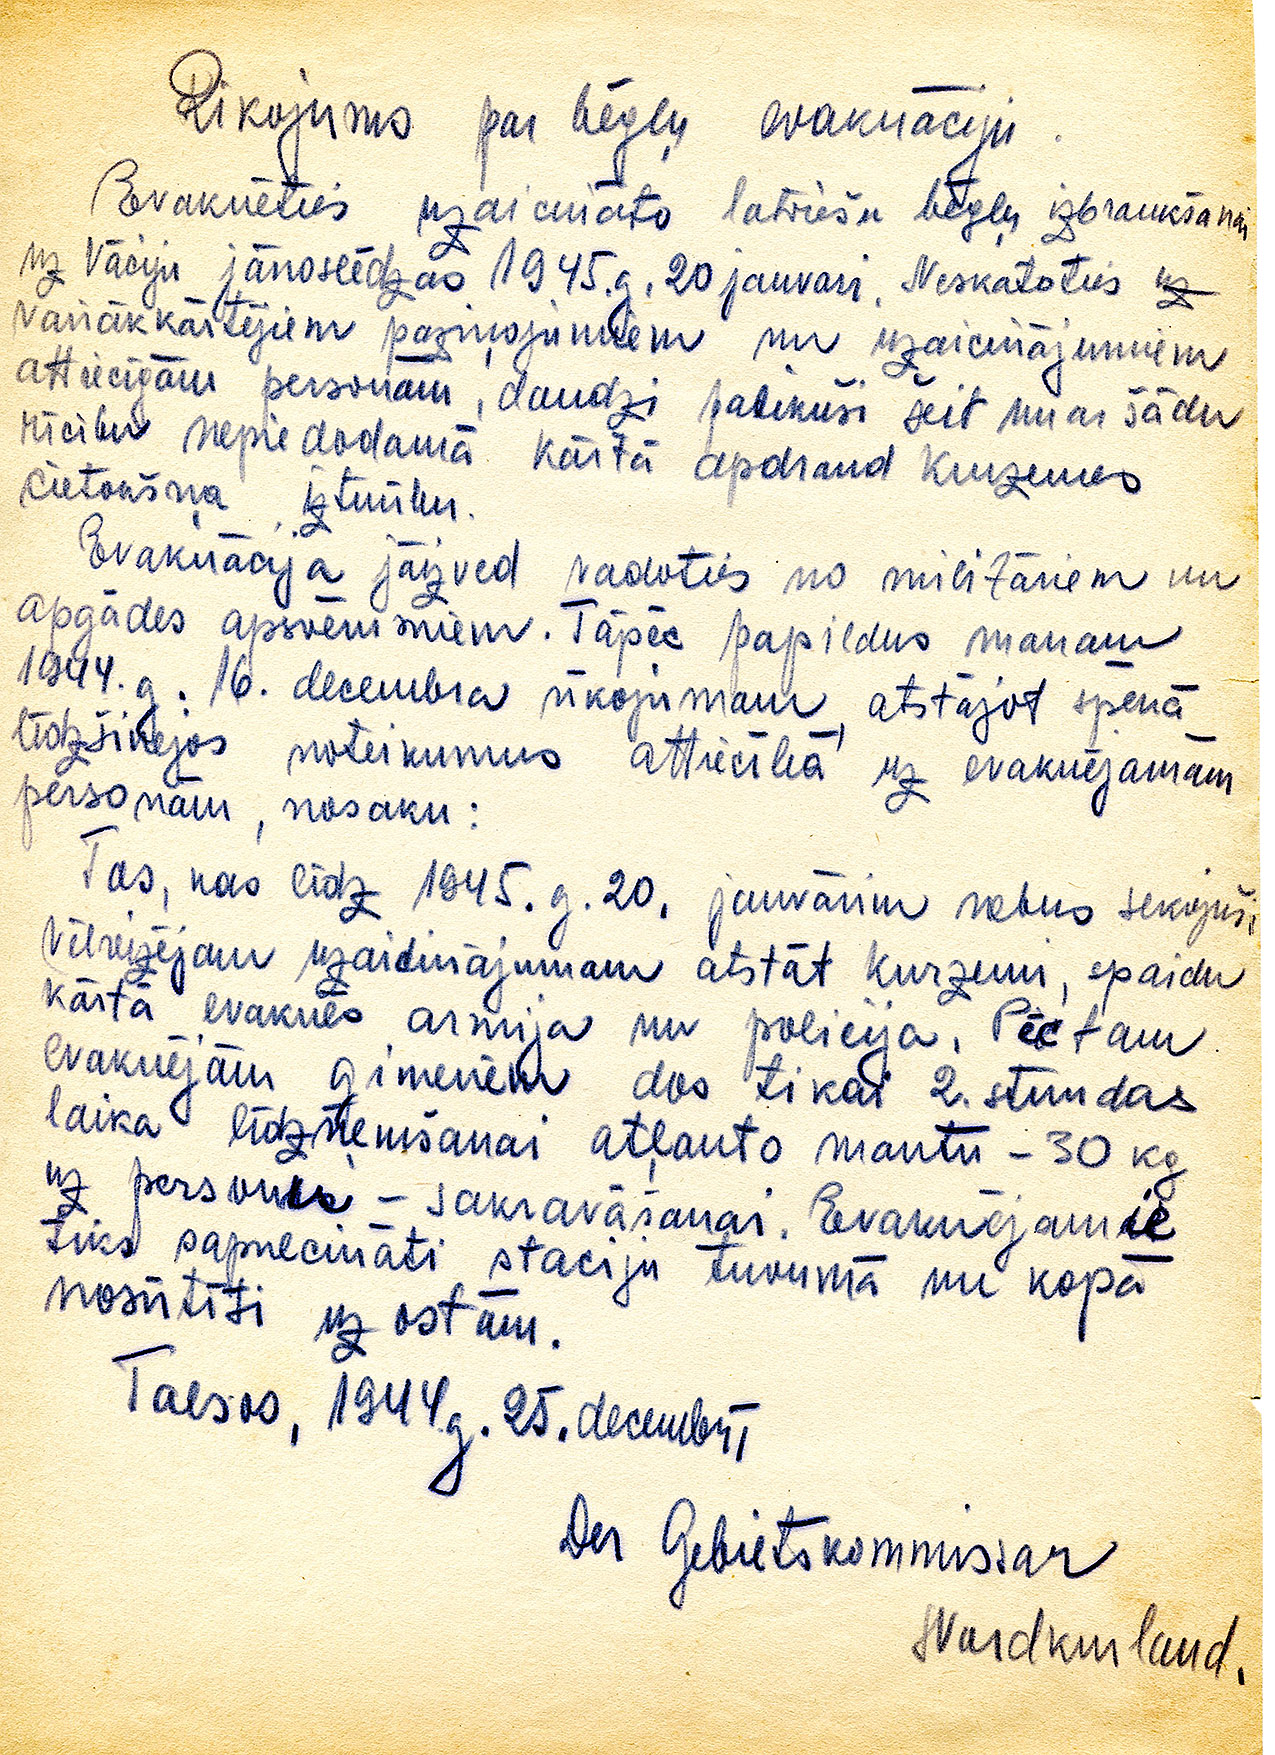 Rīkojums par bēgļu evakuāciju.
Evakuēties uzaicināto latviešu bēgļu izbraukšanai
uz Vāciju jānoslēdzas 1945.g. 20 janvarī. Neskatoties uz
vairākkārtējiem paziņojumiem un uzaicinājumiem
attiecīgām personām, daudzi palikuši šeit un ar šādu
rīcību nepiedodamā kārtā apdraud Kurzemes
cietokšņa iztuību.
Evakuācija jāizved vadoties no militāriem un
apgādes apsvērumiem. Tāpēc papildus manam
1944.g. 16. decembra rīkojumam, atstājot spēkā
līdzšinējos noteikumus attiecībā uz evakuējamām
personām, nosaku:
Tos, kas līdz 1945.g. 20. janvārim nebūs sekojuši
vēlreizējam uzaicinājumam atstāt Kurzemi, spaidu
kārtā evakuēs armija un policija. Pēc tam
evakuējām ģimenēm dos tikai 2. stundas
laika līdzņemšanai atļauto mantu – 30 kg
uz personu – sakravāšanai. Evakuējamie
tiks sapulcināti staciju tuvumā un kopā
nosūtīti uz ostām.
Talsos, 1944g. 25. decembrī
Der Gebietskommissar
Nordkurland.